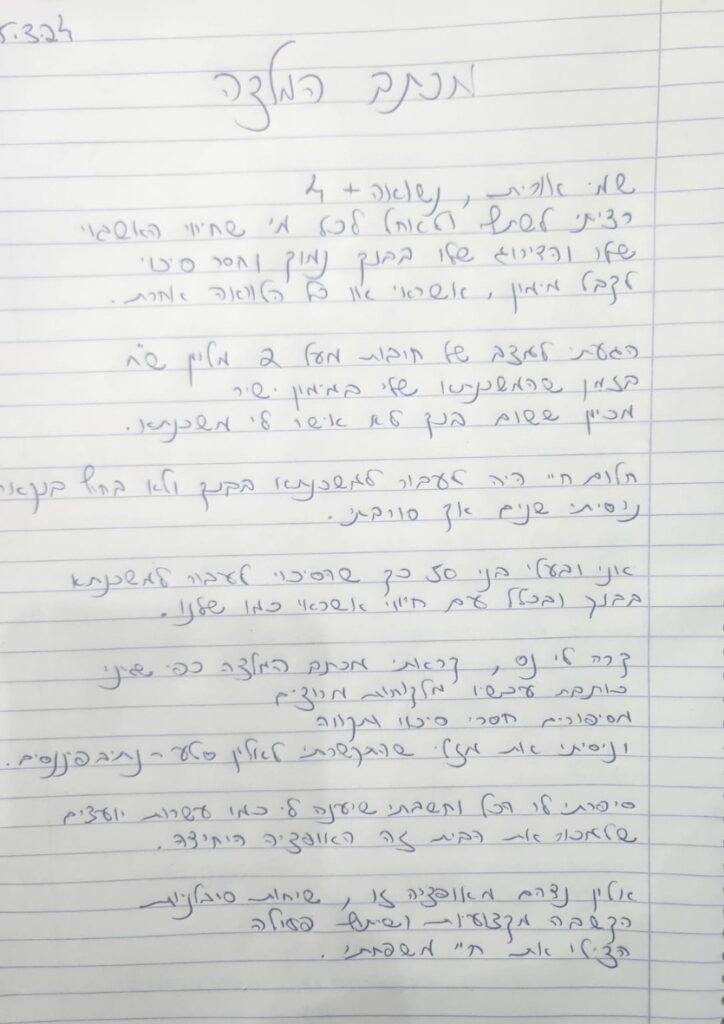 5.3.24
מכתב המלצה
שמי אורית, נשואה + 4
רציתי לשתף ולאחל לכל מי שחיווי האשראי
שלו והדירוג שלו בבנק נמוך וחסר סיכוי
לקבל מימון, אשראי או כל הלוואה אחרת.
הגעתי למצב של חובות מעל 2 מליון ש"ח
בזמן שהמשכנתא שלי במימון ישיר
מכיוון ששום בנק לא אישר לי משכנתא.
חלום חיי היה לעבור למשכנתא בבנק ולא בחוץ בנקאי
ניסיתי שנים אך סורבתי.
אני ובעלי בני 50 כך שהסיכוי לעבור למשכנתא
בבנק ובכלל עם חיווי אשראי כמו שלנו.
קרה לי נס, קראתי מכתב המלצה כפי שאני
כותבת עכשיו מלקוחות מרוצים
מסיפורים חסרי סיכוי ותקווה
וניסיתי את מזלי שהתקשרתי לאלין סלע - נתיב פיננסים.
סיפרתי לו הכל וחשבתי שיענה לי כמו עשרות יועצים
שלמכור את הבית זה האופציה היחידה.
אלין נדהם מאופציה זו, שיחות סיבלניות
הקשבה מקצועות ושיתוף פעולה
הצילו את חיי משפחתי.